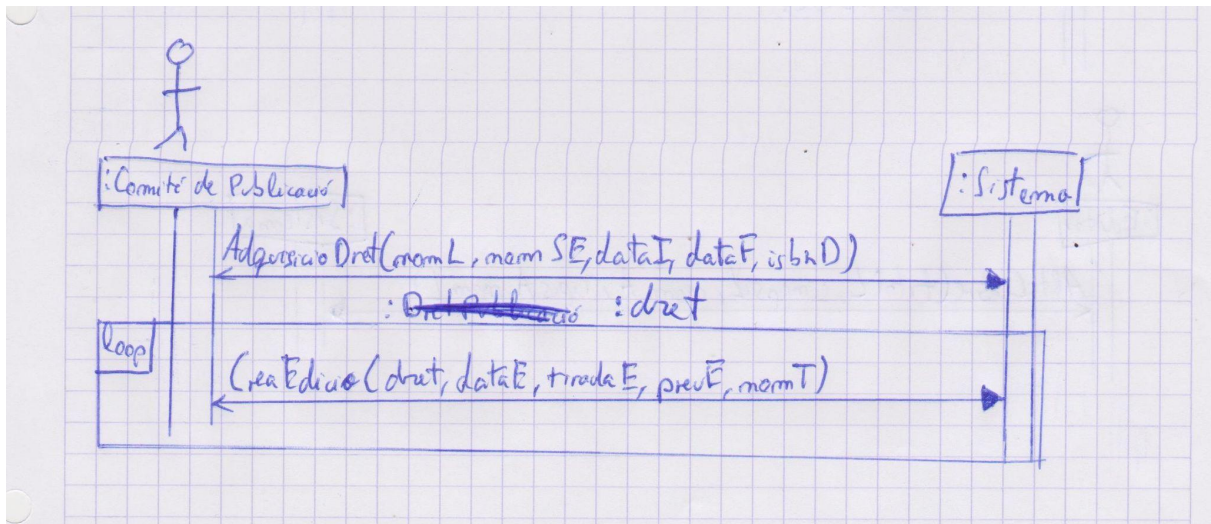 :Comité de Publicació
:Sistema
AdquisicioDret(nomL, nomSE, dataI, dataF, isbnD)
: DretPublicació :dret
loop
CreaEdicio(dret, dataE, tiradaE, preuE, nomT)